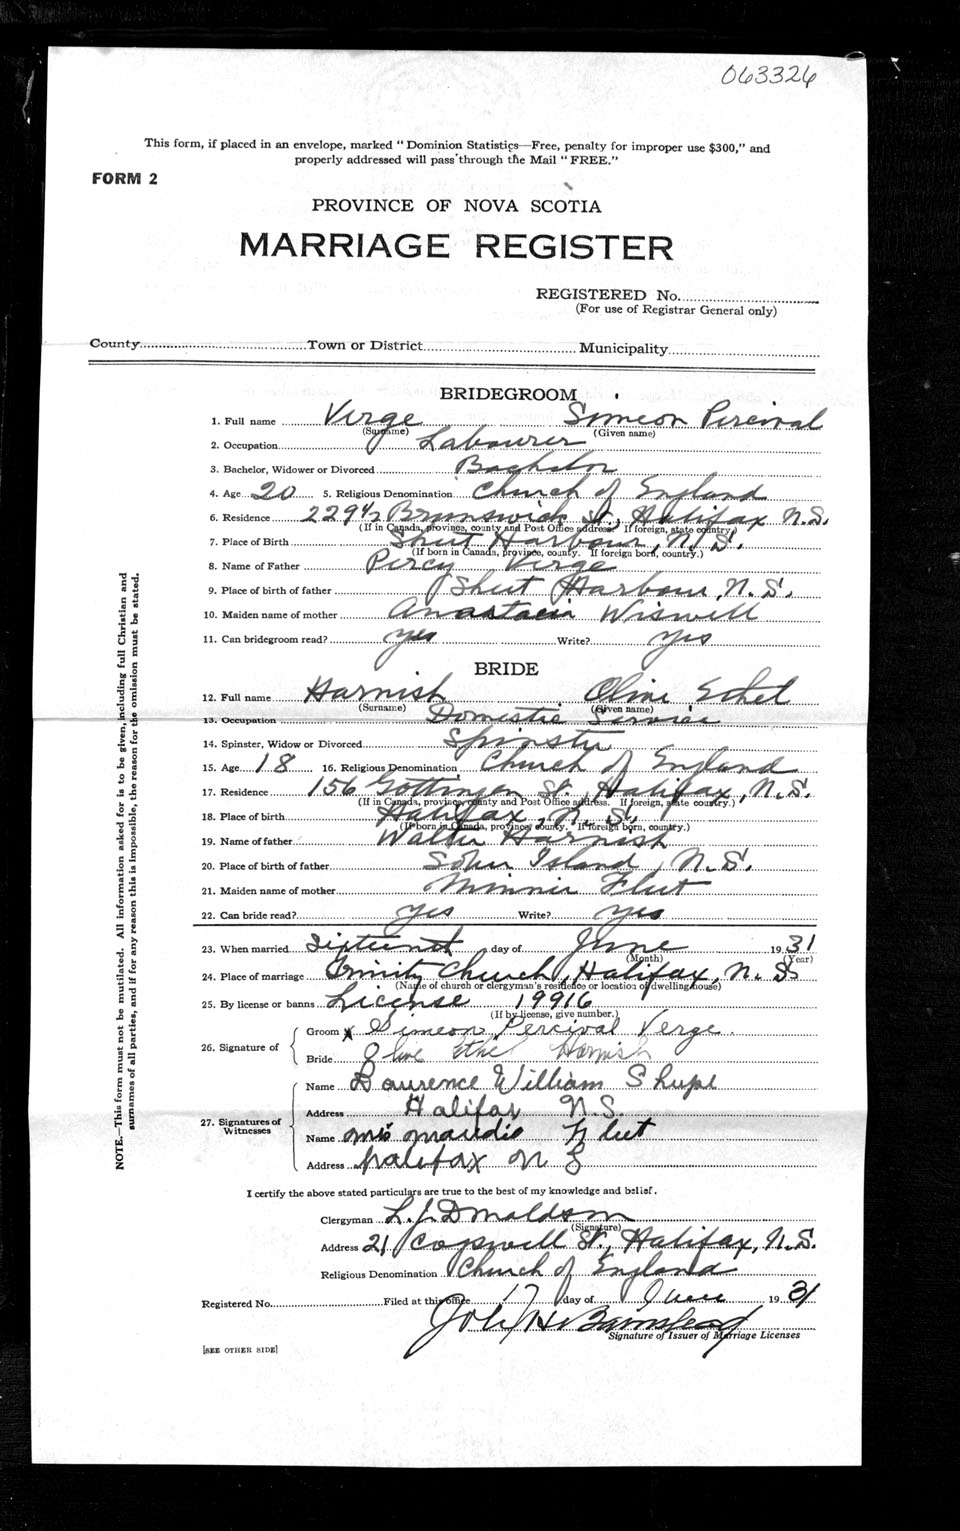 063326
This form, if placed in an envelope, marked "Dominion Statistics—Free, penalty for improper use $300," and
properly addressed will pass through the Mail "FREE."
FORM 2
PROVINCE OF NOVA SCOTIA
MARRIAGE REGISTER
REGISTERED No.
(For use of Registrar General only)
County Town or District Municipality
BRIDEGROOM
1. Full name Verge Simeon Percival
(Surname) (Given name)
2. Occupation Labourer
3. Bachelor, Widower or Divorced Bachelor
4. Age 20 5. Religious Denomination Church of England
6. Residence 229½ Brunswick St., Halifax N.S.
(If in Canada, province, county and Post Office address. If foreign, state country.)
7. Place of Birth Sheet Harbour, N.S.
(If born in Canada, province, county. If foreign born, country.)
8. Name of Father Percy Verge
9. Place of birth of father Sheet Harbour, N.S.
10. Maiden name of mother Anastacia Wiswell
11. Can bridegroom read? yes Write? yes
BRIDE
12. Full name Harnish Olive Ethel
(Surname) (Given name)
13. Occupation Domestic Service
14. Spinster, Widow or Divorced Spinster
15. Age 18 16. Religious Denomination Church of England
17. Residence 156 Gottingen St., Halifax, N.S.
(If in Canada, province, county and Post Office address. If foreign, state country.)
18. Place of birth Halifax, N.S.
(If born in Canada, province, county. If foreign born, country.)
19. Name of father Walter Harnish
20. Place of birth of father Island, N.S.
21. Maiden name of mother Minnie Fleet
22. Can bride read? yes Write? yes
23. When married Sixteenth day of June 1931
(Month) (Year)
24. Place of marriage Trinity Church, Halifax, N.S.
(Name of church or clergyman's residence or location of dwelling house)
25. By license or banns License 19916
(If by license, give number.)
26. Signature of
Groom x Simeon Percival Verge
Bride Olive Ethel Harnish
27. Signatures of Witnesses
Name Laurence William Shupe
Address Halifax N.S.
Name Mrs Maudie Fleet
Address Halifax N S
I certify the above stated particulars are true to the best of my knowledge and belief.
Clergyman L.J. Donaldson
(Signature)
Address 21 Cogswell St., Halifax, N.S.
Religious Denomination Church of England
Registered No. Filed at this office 17 day of June 1931
John H Barnstead
Signature of Issuer of Marriage Licenses
[SEE OTHER SIDE]
NOTE.—This form must not be mutilated. All information asked for is to be given, including full Christian and
surnames of all parties, and if for any reason this is impossible, the reason for the omission must be stated.